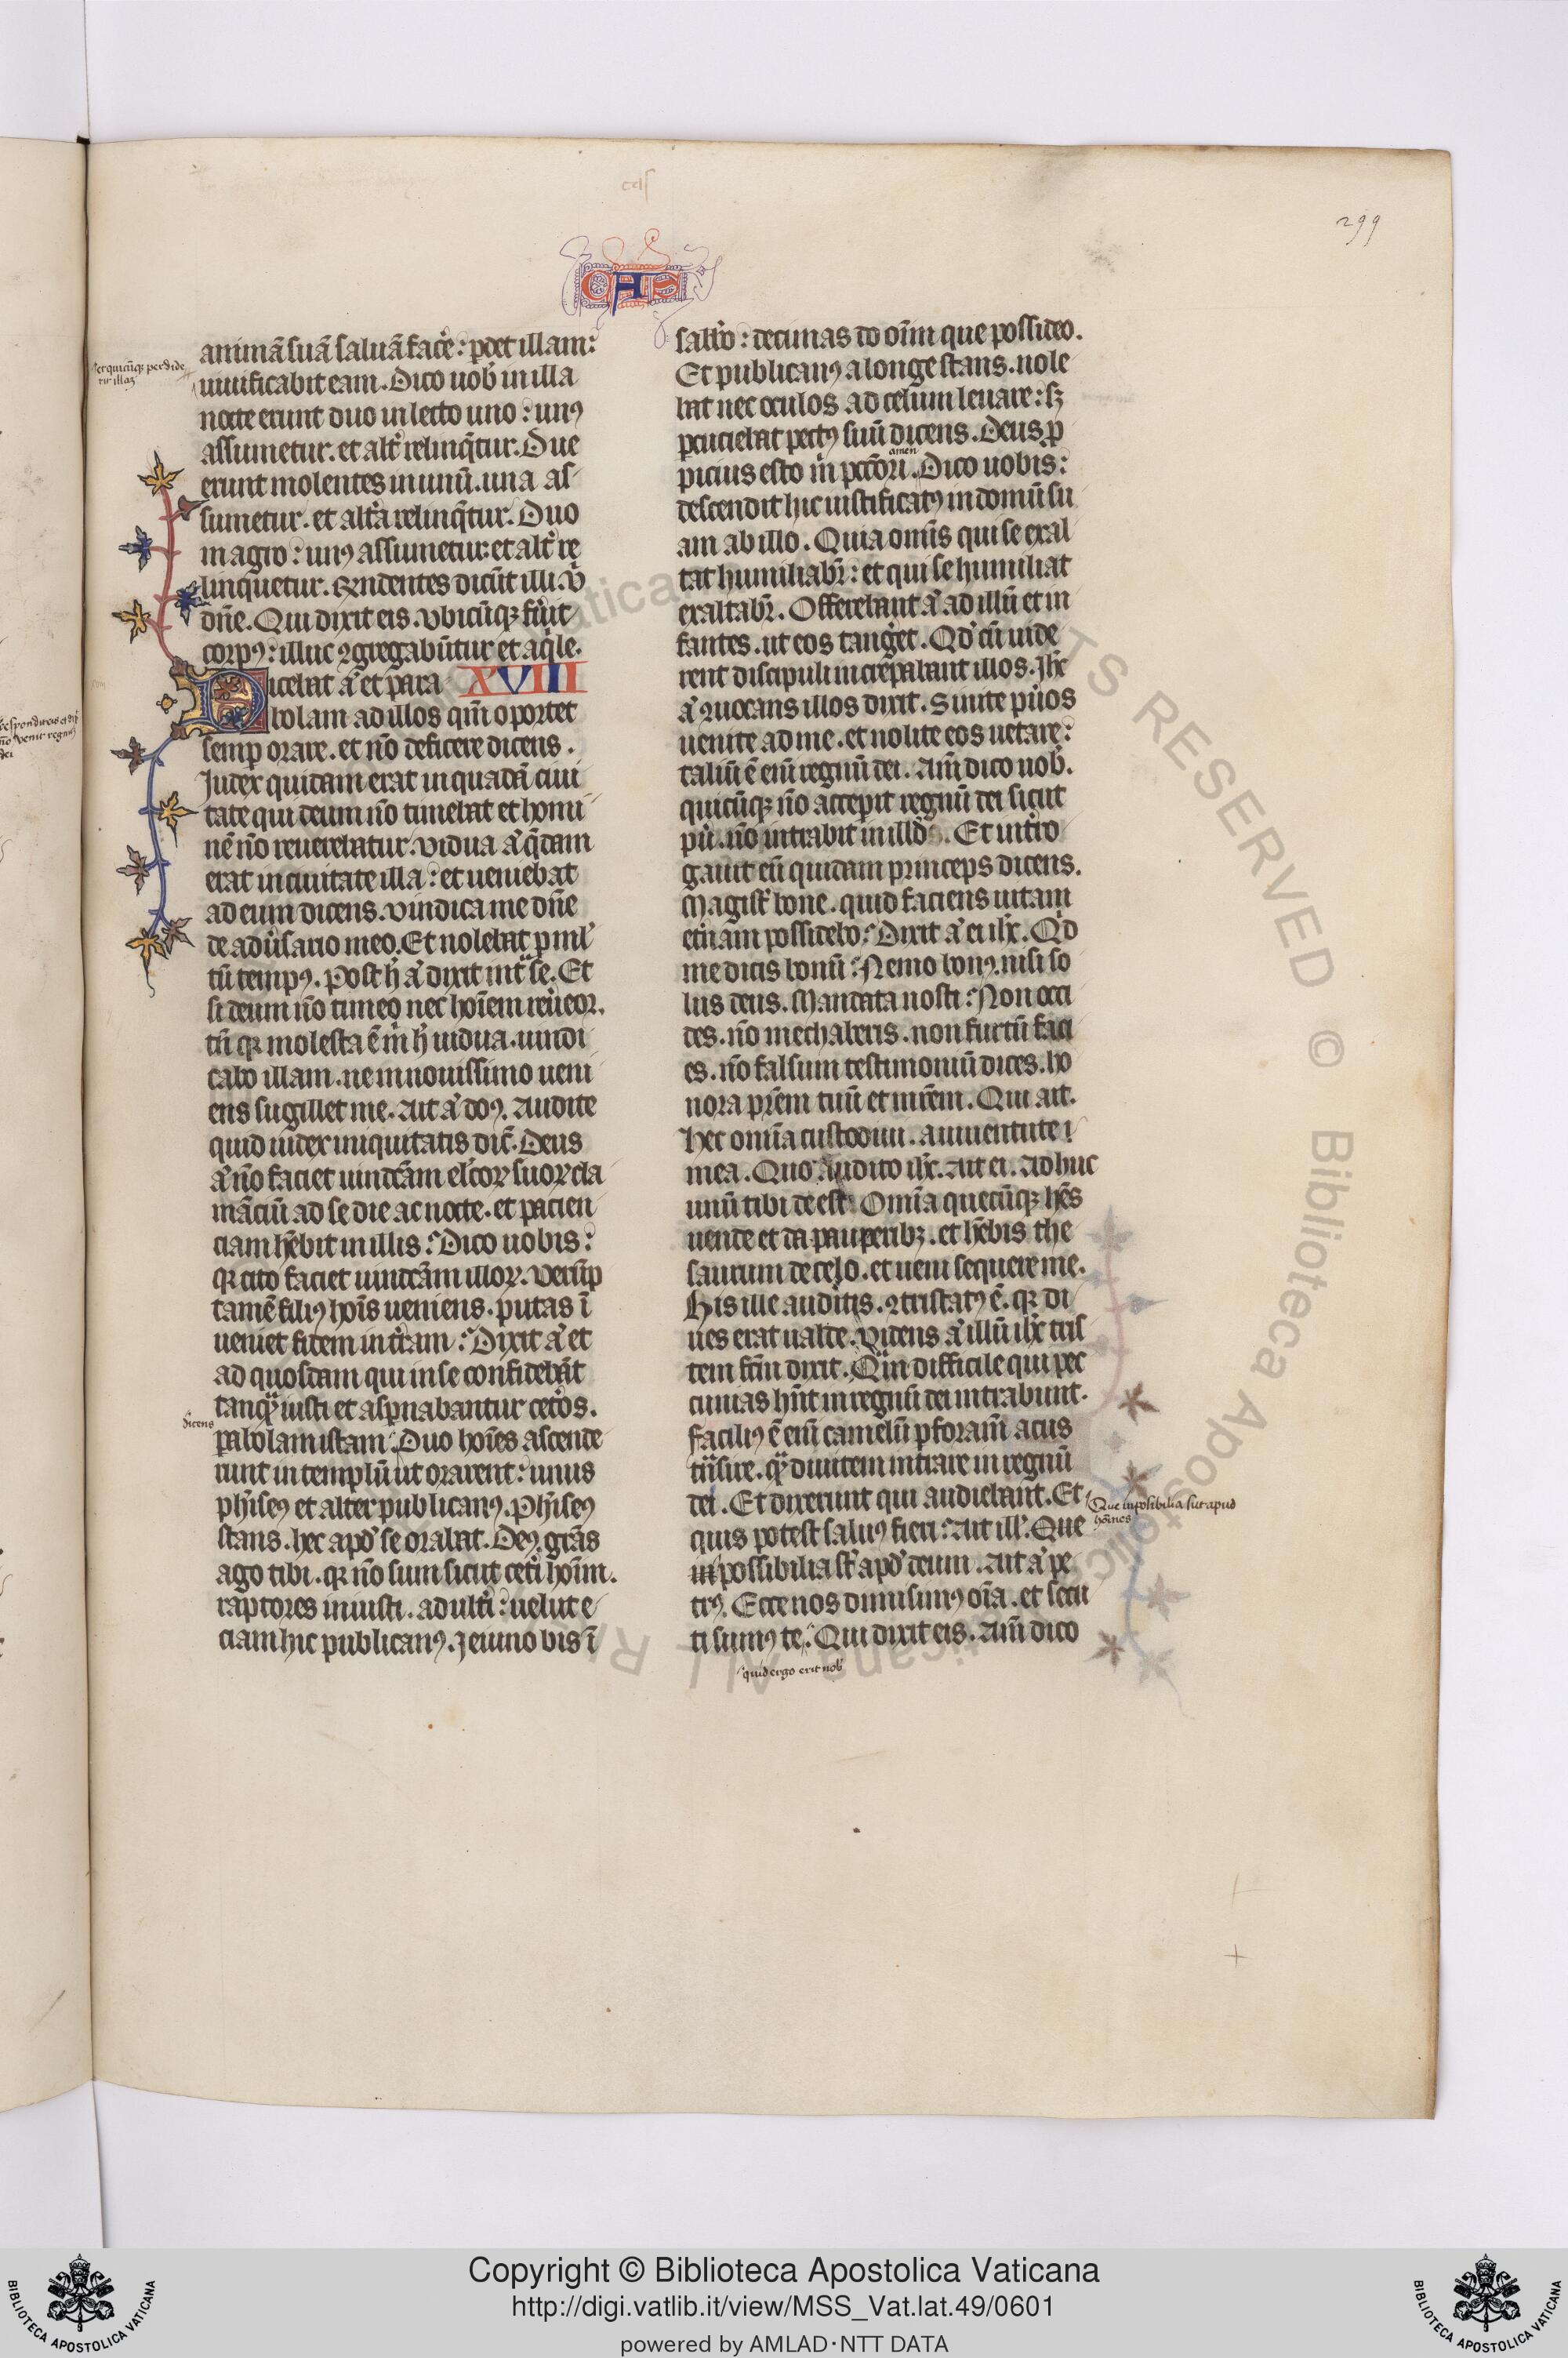 299
CAS
animā suā saluā facẻ: ꝑdet illam:
et quicūqꝫ perdide
rit illaꝫ
uiuificabit eam. Dico uob̛ in illa
nocte erunt duo in lecto uno: unꝰ
assumetur. et alt̛ relinq̄tur. Due
erunt molentes in unū. una as
sumetur. et alt̛a relinq̄tur. Duo
in agro: unꝰ assumetur: et alt̛ re
linquetur. Rn̄dentes dicūt illi. V̛
dn̄e. Qui dixit eis. Vbicūqꝫ fưit
corpꝰ: illuc ꝯgregabūtur et aq̛le.
Dicebat a̛ et para XVIII
bolam ad illos qm̄ oportet
semꝑ orare. et nō deficere dicens.
Iudex quidam erat in quadā ciui
tate qui deum nō timebat et homi
nē nō reuerebatur. Vidua a̛ q̄dam
erat in ciuitate illa: et ueniebat
ad eum dicens. Vindica me dn̄e
de adưsario meo. Et nolebat ꝑ ml̛
tū tempꝰ. Post h̛ a̛ dixit int̛ se. Et
si deum nō timeo nec hoīem reưeor.
tn̄ qꝛ molesta ē m̛ h̛ uidua. uindi
cabo illam. ne in nouissimo ueni
ens sugillet me. Ait a̛ dn̄s. Audite
quid iudex iniquitatis dic̄. Deus
a̛ nō faciet uindc̄am el̛coꝝ suoꝝ cla
māciū ad se die ac nocte. et pacien
ciam hēbit in illis: Dico uobis:
qꝛ cito faciet uindc̄am illoꝝ. Verūp
tamē filiꝰ hoīs ueniens. putas ī
ueniet fidem in t̛ram: Dixit a̛ et
ad quosdam qui in se confidebāt
tanqꝫ iusti et asꝑnabantur cet̛os.
dicens
ꝑabolam istam. Duo hoīes ascende
runt in templū ut orarent: unus
ph̛iseꝰ et alter publicanꝰ. Ph̛iseꝰ
stans. hec apd̛ se orabat. Deꝰ. gr̄as
ago tibi. qꝛ nō sum sicut cet̛i hoīm.
raptores iniusti. adult̛i: uelut e
ciam hic publicanꝰ. Ieiuno bis ī
sabb̛o: decimas do oīm que possideo.
Et publicanꝰ a longe stans. nole
bat nec oculos ad celum leuare: sꝫ
ꝑcuciebat pectꝰ suū dicens. Deus ꝓ
picius esto m̛ pc̄c̄ori. Dico uobis:
amen
descendit hic iustificatꝰ in domū su
am ab illo. Quia omīs qui se exal
tat humiliabr̛: et qui se humiliat
exaltabr̛. Offerebant a̛ ad illū et in
fantes. ut eos tanget. Qd̛ cū uide
rent discipuli increpabant illos. Ih̄c
a̛ ꝯuocans illos dixit. Sinite pưos
uenire ad me. et nolite eos uetare:
taliū ē eni̅ regnū dei. Am̄ dico uob̛.
quicūqꝫ nō acceꝑit regnū dei sicut
pư. nō intrabit in ill̛d. Et int̛ro
gauit eū quidam princeps dicens.
Magist̛ bone. quid faciens uitam
et̛nam possidebo: Dixit a̛ ei ih̄c. Qd̛
me dicis bonū: Nemo bonꝰ. nisi so
lus deus. Mandata nosti: Non occi
des. nō mechaberis. non furtū faci
es. nō falsum testimoniū dices. ho
nora pr̄em tuū et mr̄em. Qui ait.
hec omīa custodiui. a iuuentute
mea. Quo audito ih̄c. Ait ei. Adhuc
unū tibi deest: Omīa quecūqꝫ hēs
uende et da pauperibꝫ. et hēbis the
saurum de celo. et ueni sequere me.
His ille auditis. ꝯtristatꝰ ē. qꝛ di
ues erat ualde. Videns a̛ illū ih̄c tris
tem fc̄m dixit. Qm̄ difficile qui pec
cunias hn̄t in regnū dei intrabunt.
facilius ē eni̅ camelū ꝑ foram̄ acus
t̛nsire. qꝫ diuitem intrare in regnū
dei. Et dixerunt qui audiebant. Et
quis potest saluꝰ fieri: Ait ill̛. Que
Que inposibilia sūt apud
hōines
inpossibilia st̛ apd̛ deum. Ait a̛ pe
trꝰ. Ecce nos dimisimꝰ oīa. et secu
ti sumꝰ te: Qui dixit eis. Am̄ dico
quid ergo erit nob̛
Copyright © Biblioteca Apostolica Vaticana
http://digi.vatlib.it/view/MSS_Vat.lat.49/0601
powered by AMLAD·NTT DATA
BIBLIOTECA APOSTOLICA VATICANA
BIBLIOTECA APOSTOLICA VATICANA